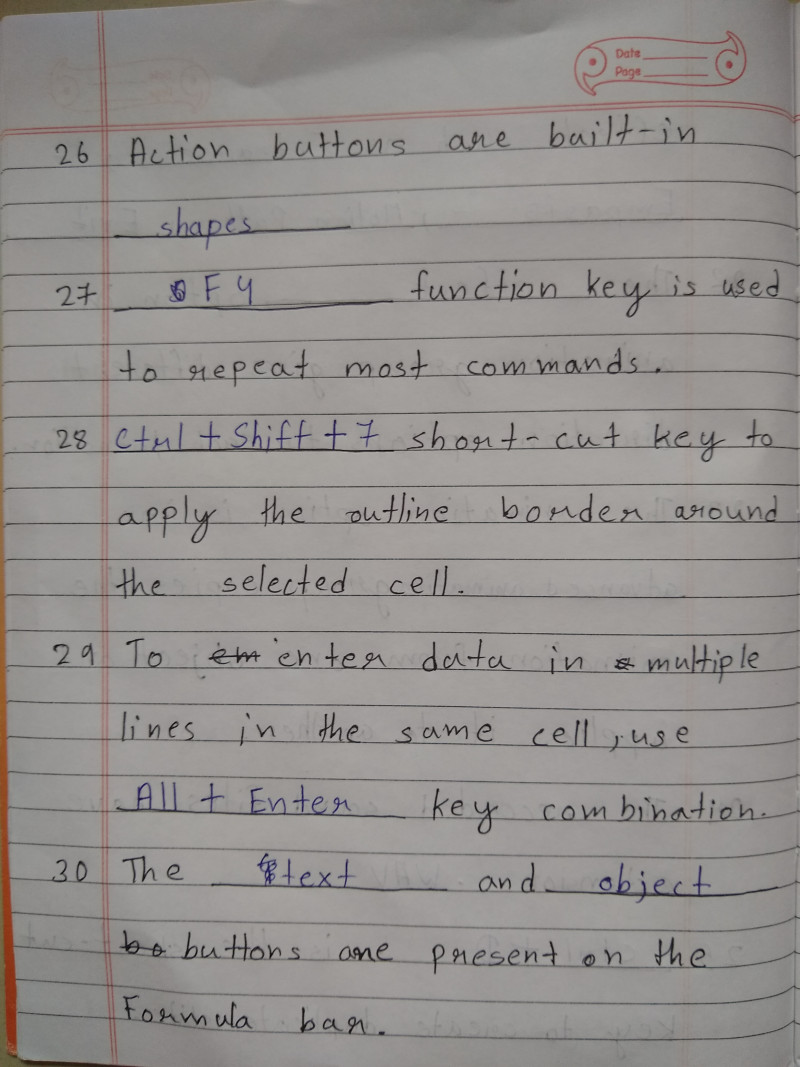 Date
Page
26 Action buttons are built-in
shapes
27 F4 function key is used
to repeat most commands.
28 Ctrl + Shift + 7 short-cut key to
apply the outline border around
the selected cell.
29 To enter data in multiple
lines in the same cell, use
All + Enter key combination.
30 The text and object
buttons are present on the
Formula bar.